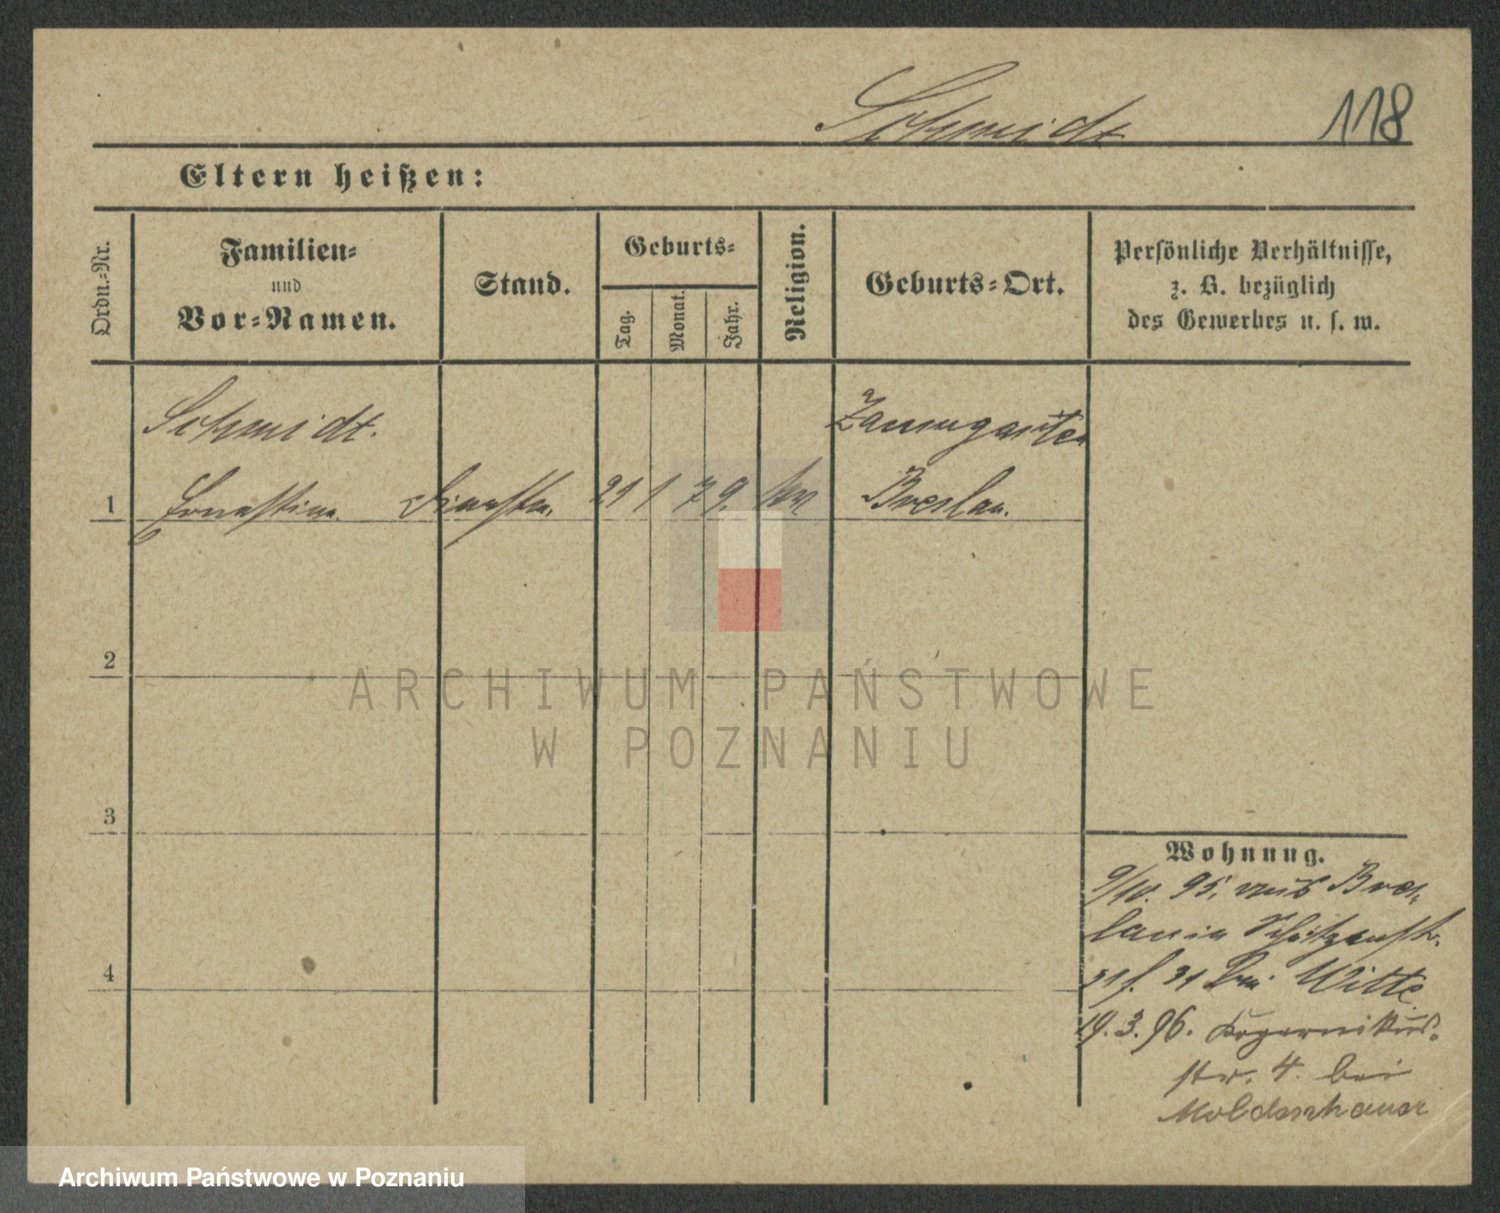 Schmidt 118
Eltern heißen:
Ordn.-Nr.
Familien-
und
Vor-Namen.
Stand.
Geburts-
Tag.
Monat.
Jahr.
Religion.
Geburts-Ort.
Persönliche Verhältnisse,
z. B. bezüglich
des Gewerbes u. s. w.
Schmidt.
1 Ernestine 21 1 79.
Breslau.
2
3
4
Wohnung.
9/10. 95. aus Bres-
lau in Schützenstr.
31 bei Witte
19.3.96. Kopernikus-
str. 4. bei
Moldeschauer
ARCHIWUM PAŃSTWOWE
W POZNANIU
Archiwum Państwowe w Poznaniu